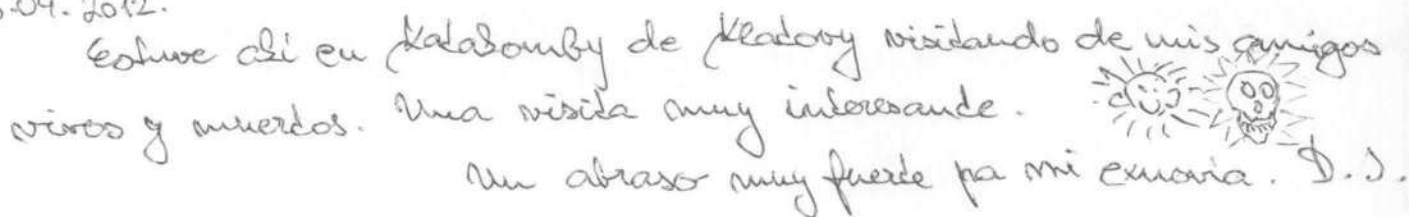 .09.2012.
Estuve así en Katakomby de Kladovy visitando de mis amigos
vivos y muertos. Una visita muy interesante.
Un abraso muy fuerte pa mi exnovia. D.J.